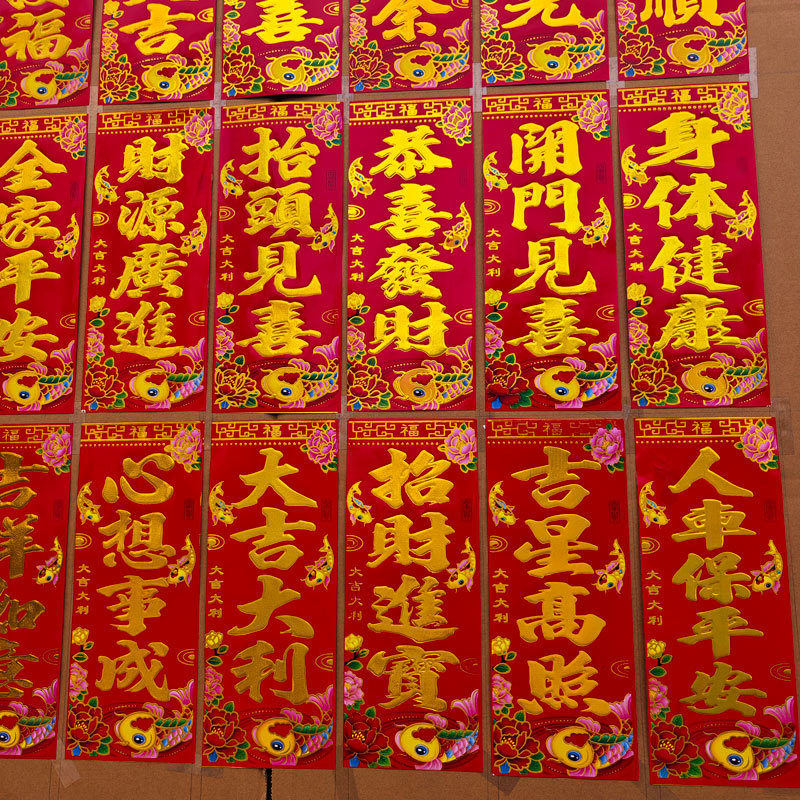 福
吉
喜
順
福
全家平安
福
財源廣進
大吉大利
福
抬頭見喜
大吉大利
福
恭喜發財
大吉大利
福
開門見喜
大吉大利
福
身体健康
大吉大利
福
吉祥如意
福
心想事成
大吉大利
福
大吉大利
大吉大利
福
招財進寶
大吉大利
福
吉星高照
大吉大利
福
人車保平安
大吉大利